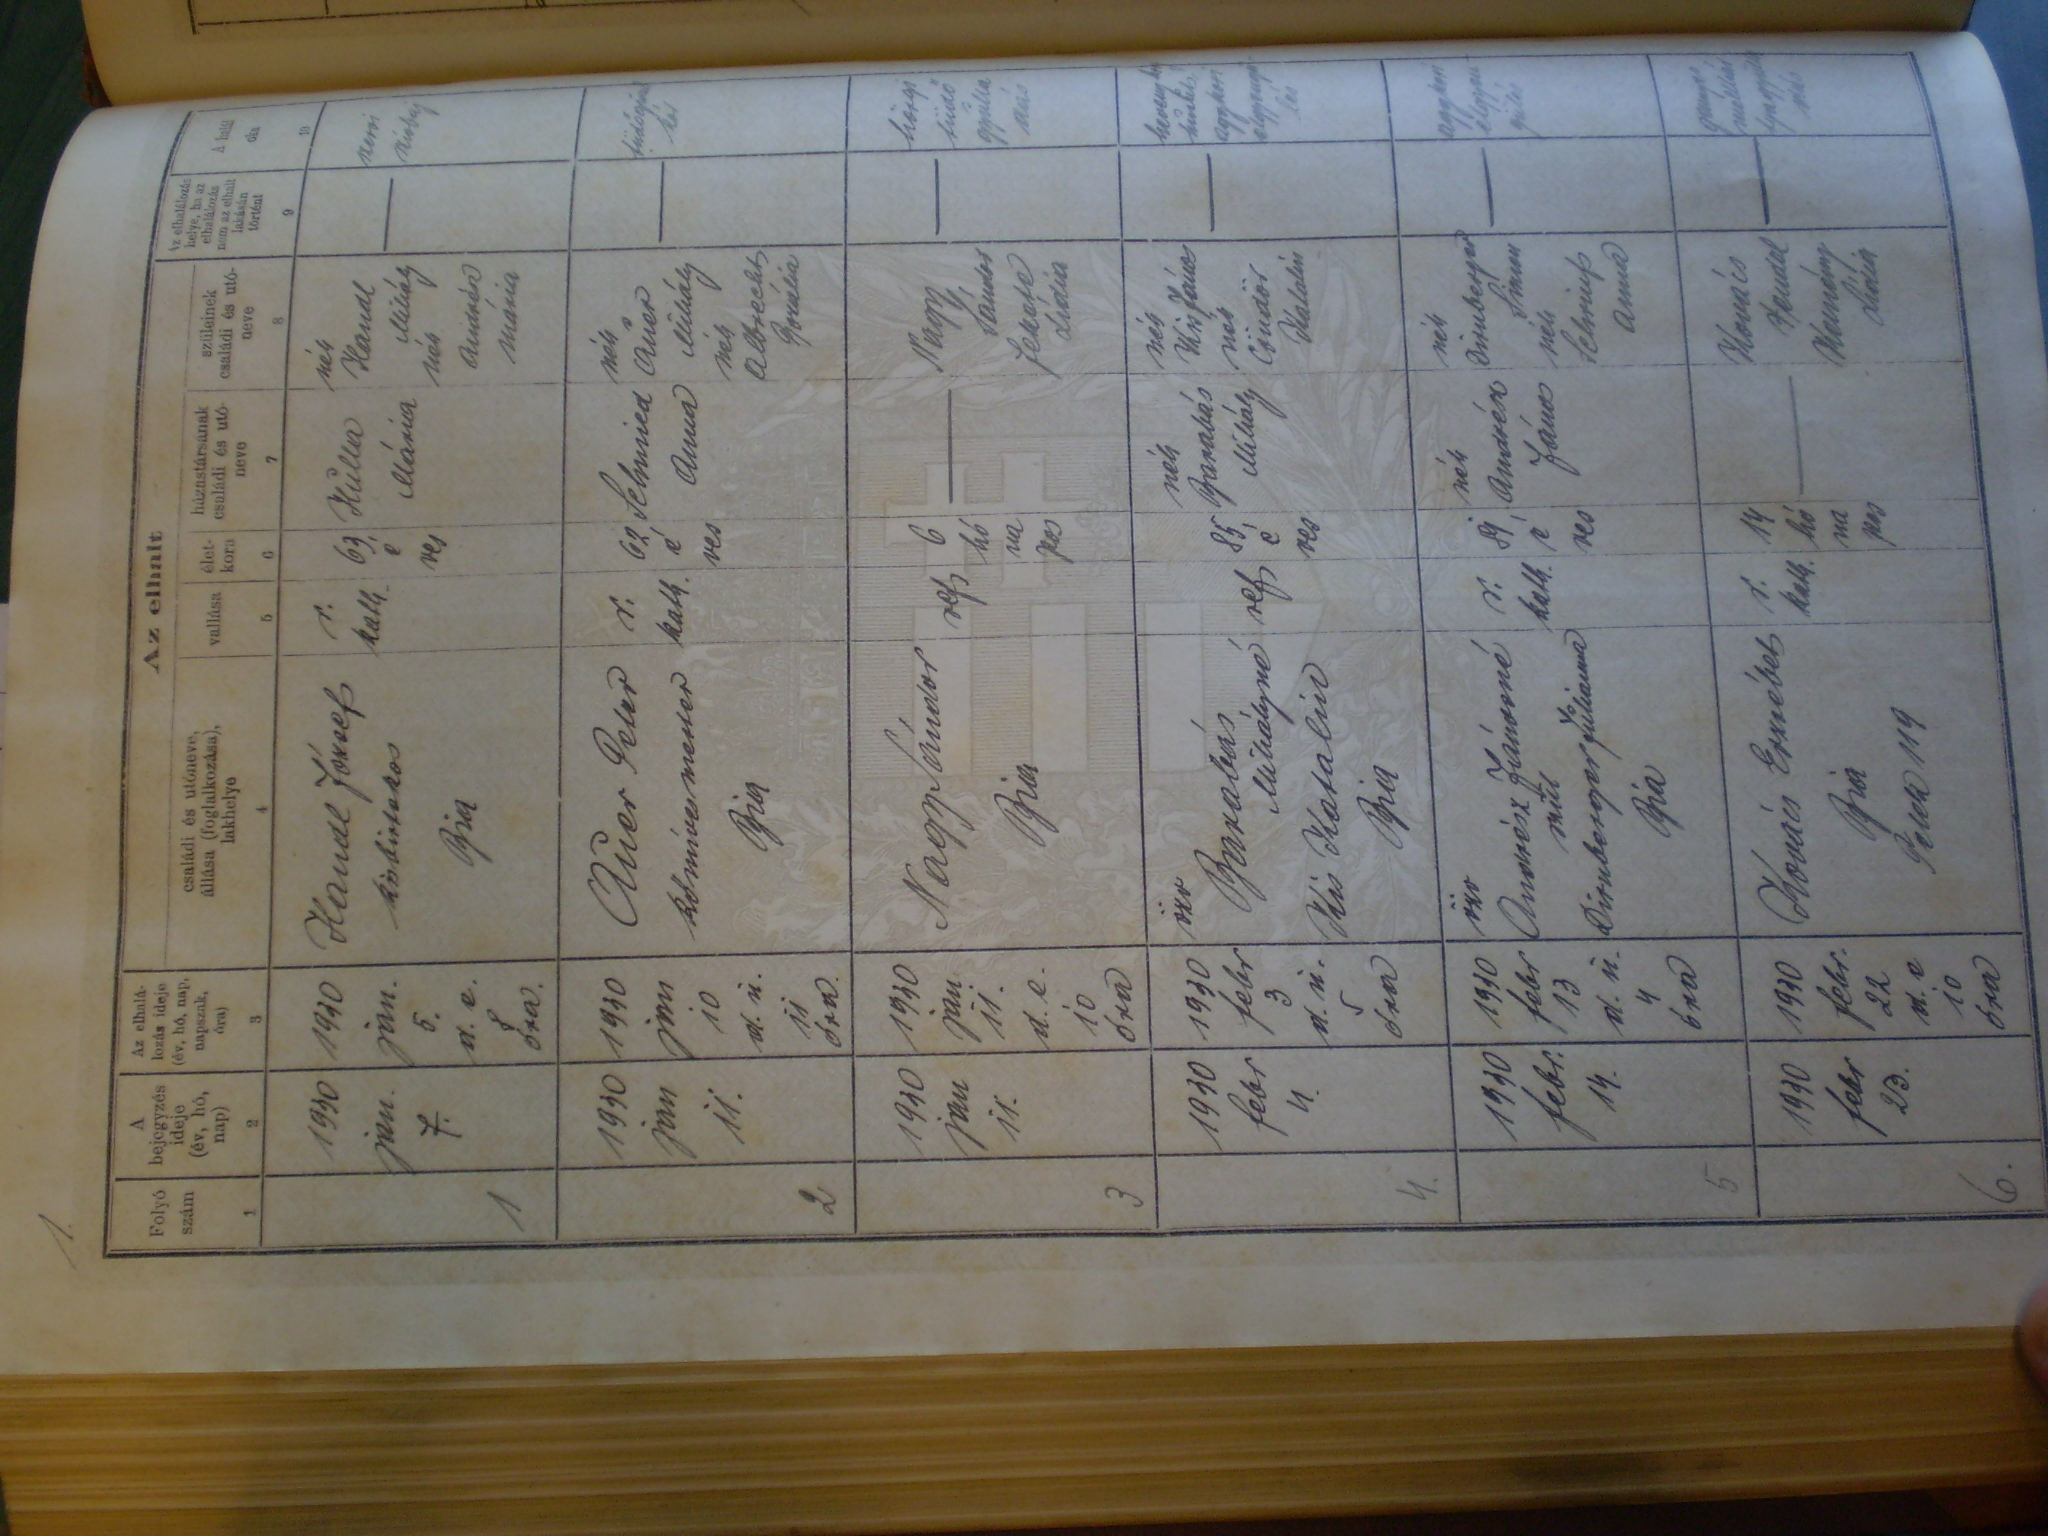 1.
Az elhalt
Folyó
szám
A
bejegyzés
ideje
(év, hó,
nap)
Az elhalá-
lozás ideje
(év, hó, nap,
napszak,
óra)
családi és utóneve,
állása (foglalkozása),
lakhelye
vallása
élet-
kora
házastársának
családi és utó-
neve
szüleinek
családi és utó-
neve
Az elhalálozás
helye, ha az
elhalálozás
nem az elhalt
lakásán
történt
A halál
oka
1
2
3
4
5
6
7
8
9
10
1
1930
jan.
7.
1930
jan.
5.
d. e.
8
óra.
Handl József
kisbirtokos
Bia
r.
kath.
63
é
ves
Kulla
Mária
néh
Handl
Mihály
néh
András
Mária
szívi
2
1930
jan
11.
1930
jan
10
d. u.
11
óra.
Auer Péter
kőmívesmester
Bia
r.
kath.
62
é
ves
Schmied
Anna
néh
Auer
Mihály
néh
Albrecht
Rozália
3
1930
jan
11.
1930
jan
11.
d. e.
10
óra
Nagy Sándor
Bia
ref
6
hó
na
pos
Nagy
Sándor
Fekete
Lidia
tüdő
4.
1930
febr
4.
1930
febr
3
d. u.
5
óra
özv
Barabás
Mihályné
Kis Katalin
Bia
ref
85
é
ves
néh
Barabás
Mihály
néh
Kis János
néh
Csindör
Katalin
5
1930
febr.
14.
1930
febr
13
d. u.
4
óra
özv
András Jánosné
szül
Dirnberger Juliánna
Bia
r.
kath.
89
é
ves
néh
András
János
néh
Dirnberger
Simon
néh
Anna
aggkori
6.
1930
febr
23.
1930
febr.
22
d. e
10
óra
Kovács Erzsébet
Bia
Peled 119
r.
kath.
14
hó
na
pos
Kovács
Kemény